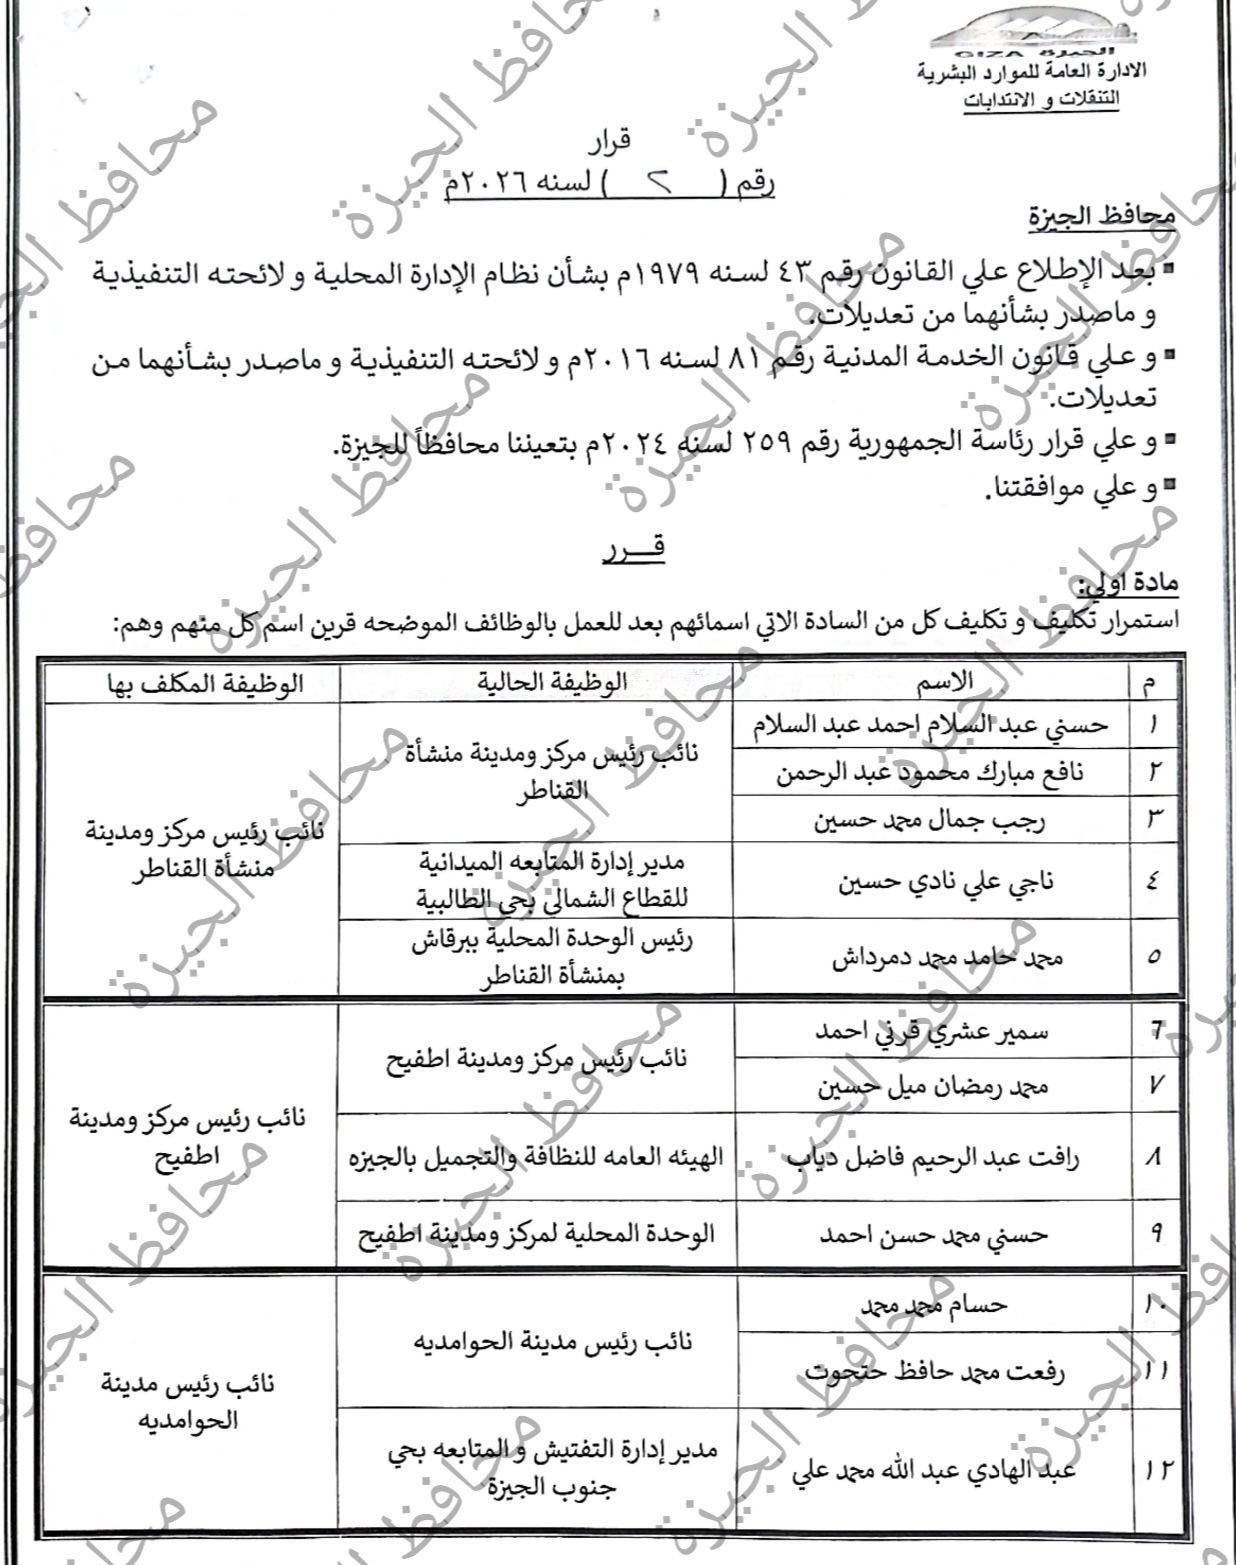 GIZA الجيزة
الادارة العامة للموارد البشرية
التنقلات و الانتدابات
قرار
رقم ( ٢ ) لسنه ٢٠٢٦م
محافظ الجيزة
▪ بعد الإطلاع علي القانون رقم ٤٣ لسنه ١٩٧٩م بشأن نظام الإدارة المحلية و لائحته التنفيذية
و ماصدر بشأنهما من تعديلات.
▪ و علي قانون الخدمة المدنية رقم ٨١ لسنه ٢٠١٦م و لائحته التنفيذية و ماصدر بشأنهما من
تعديلات.
▪ و علي قرار رئاسة الجمهورية رقم ٢٥٩ لسنه ٢٠٢٤م بتعيننا محافظاً للجيزة.
▪ و علي موافقتنا.
قـــرر
مادة اولي:
استمرار تكليف و تكليف كل من السادة الاتي اسمائهم بعد للعمل بالوظائف الموضحه قرين اسم كل منهم وهم:
م الاسم الوظيفة الحالية الوظيفة المكلف بها
١ حسني عبد السلام احمد عبد السلام
٢ نافع مبارك محمود عبد الرحمن
٣ رجب جمال محمد حسين
نائب رئيس مركز ومدينة منشأة
القناطر
٤ ناجي علي نادي حسين
مدير إدارة المتابعه الميدانية
للقطاع الشمالي بحي الطالبية
٥ محمد حامد محمد دمرداش
رئيس الوحدة المحلية ببرقاش
بمنشأة القناطر
نائب رئيس مركز ومدينة
منشأة القناطر
٦ سمير عشري قرني احمد
٧ محمد رمضان ميل حسين
نائب رئيس مركز ومدينة اطفيح
٨ رافت عبد الرحيم فاضل دياب الهيئه العامه للنظافة والتجميل بالجيزه
٩ حسني محمد حسن احمد الوحدة المحلية لمركز ومدينة اطفيح
نائب رئيس مركز ومدينة
اطفيح
١٠ حسام محمد محمد
١١ رفعت محمد حافظ حتحوت
نائب رئيس مدينة الحوامديه
١٢ عبد الهادي عبد الله محمد علي
مدير إدارة التفتيش و المتابعه بحي
جنوب الجيزة
نائب رئيس مدينة
الحوامديه
محافظ الجيزة